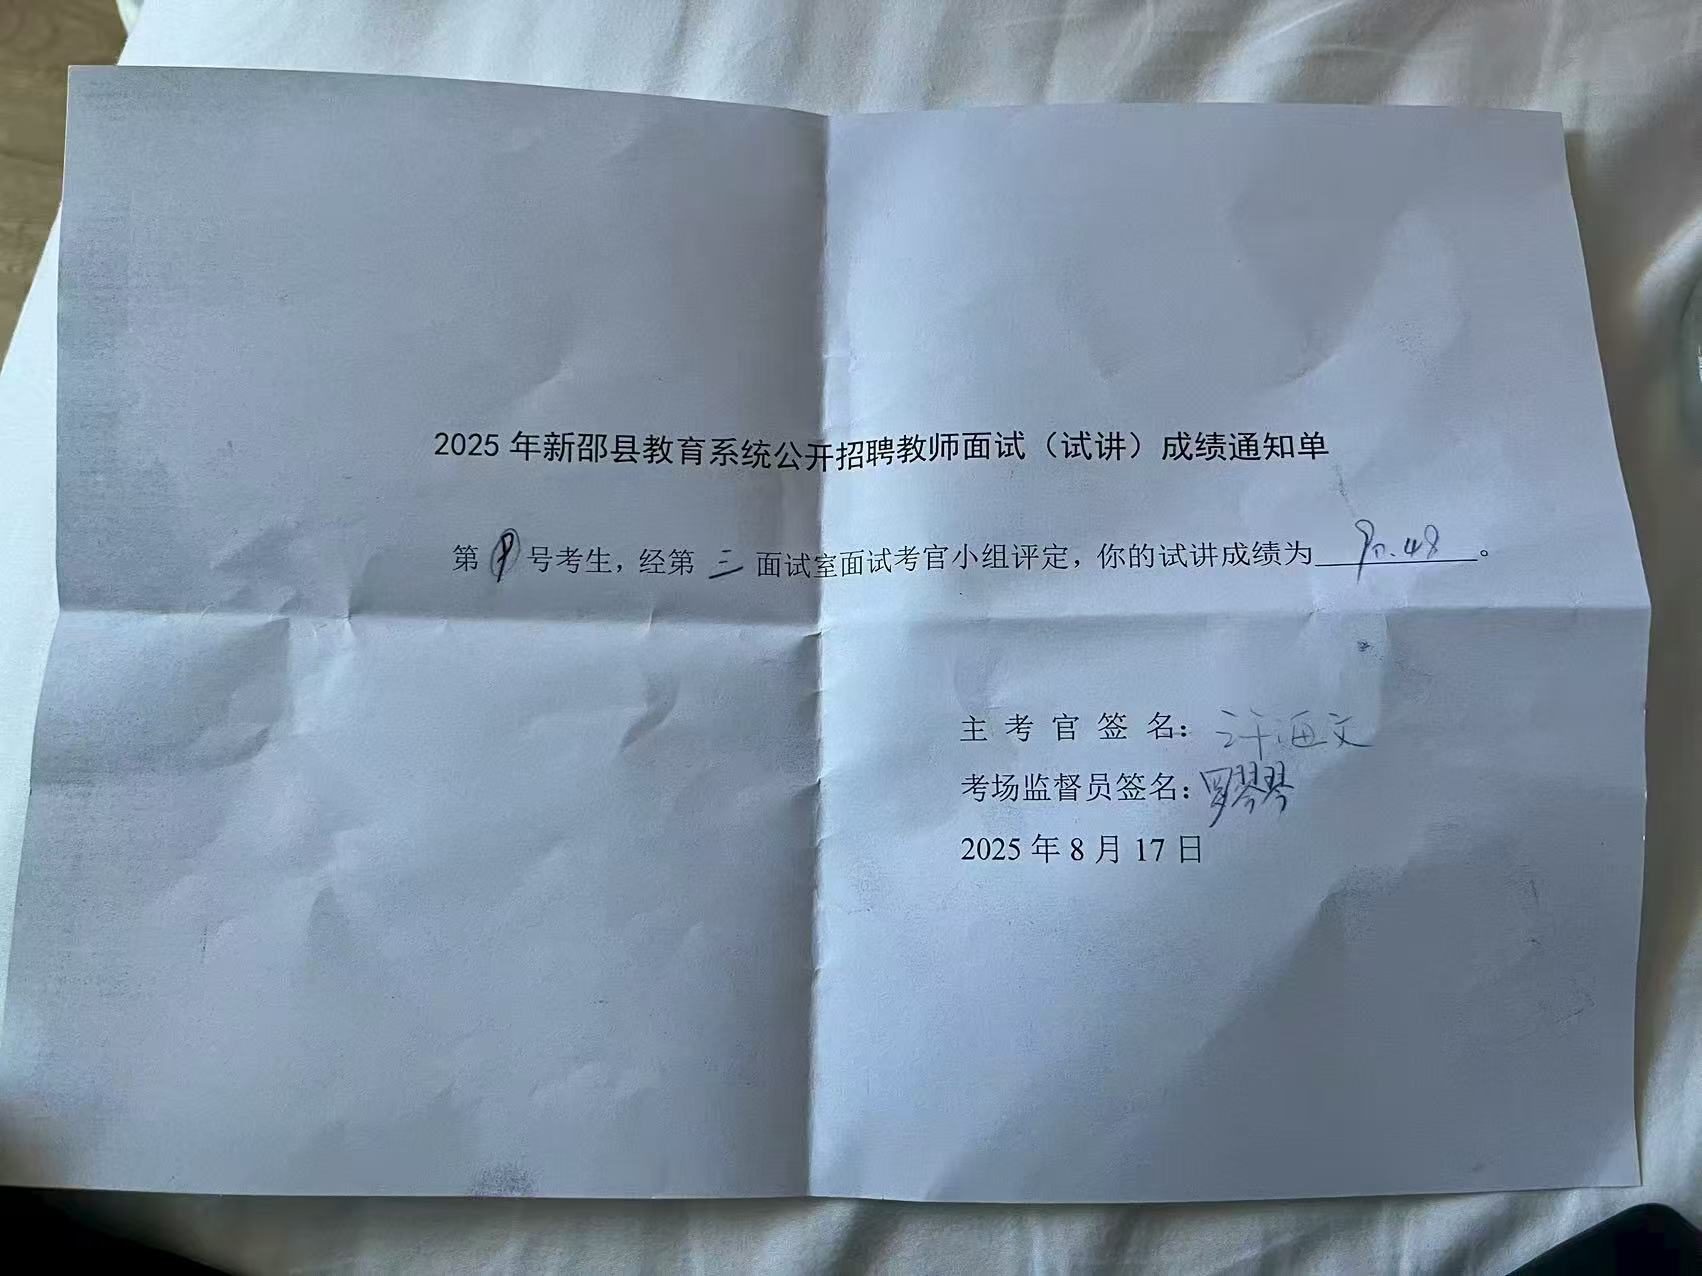 2025 年新邵县教育系统公开招聘教师面试（试讲）成绩通知单
第 9 号考生，经第 三 面试室面试考官小组评定，你的试讲成绩为 90.48 。
主 考 官 签 名：许海文
考场监督员签名：
2025 年 8 月 17 日